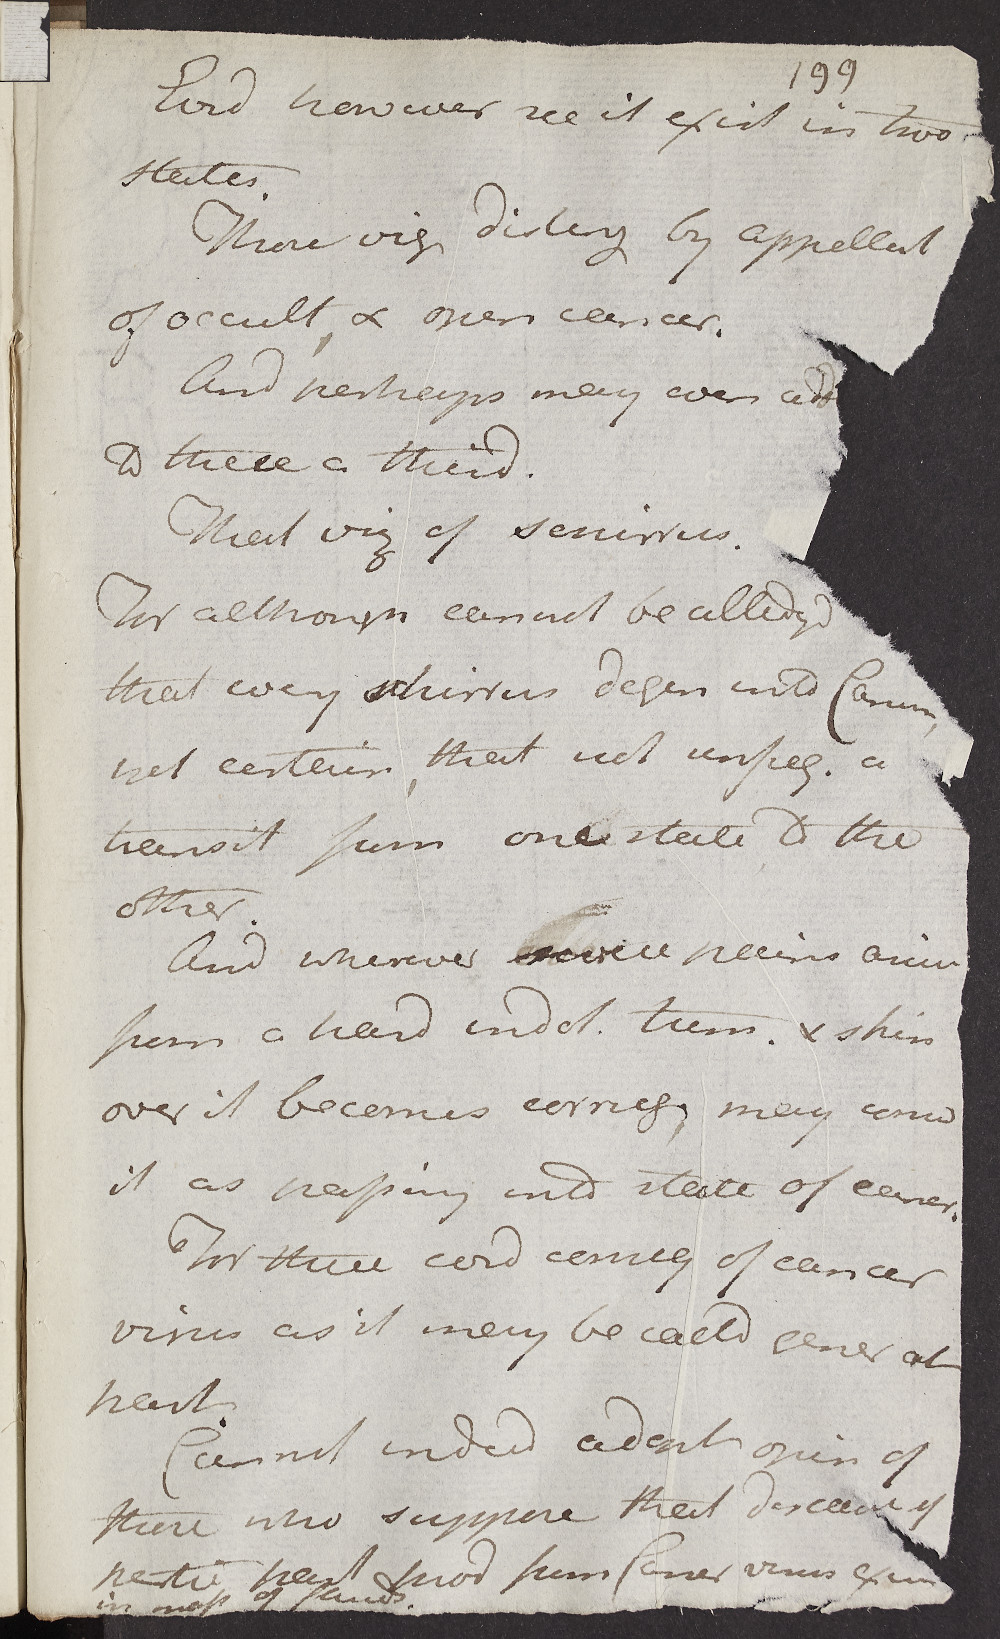 199
however see it exist in two
states.
Those viz disting by appellat
of occult, & open cancer.
And perhaps may even add
to these a third.
That viz of scirrus.
For although cannot be alledgd
that every schirrus degen into Cancer,
yet certain, that not unfreq. a
transit from one state to the
other.
And wherever severe pains arise
from a hard indol. tum. & skin
over it becomes corrug, may consid
it as passing into state of cancer.
For these cord of cancer
virus as it may be calld gener at
part.
Cannot indeed adopt opin of
those who suppose that disease of
partic part prod from Cancer virus exist
in mass of fluids.